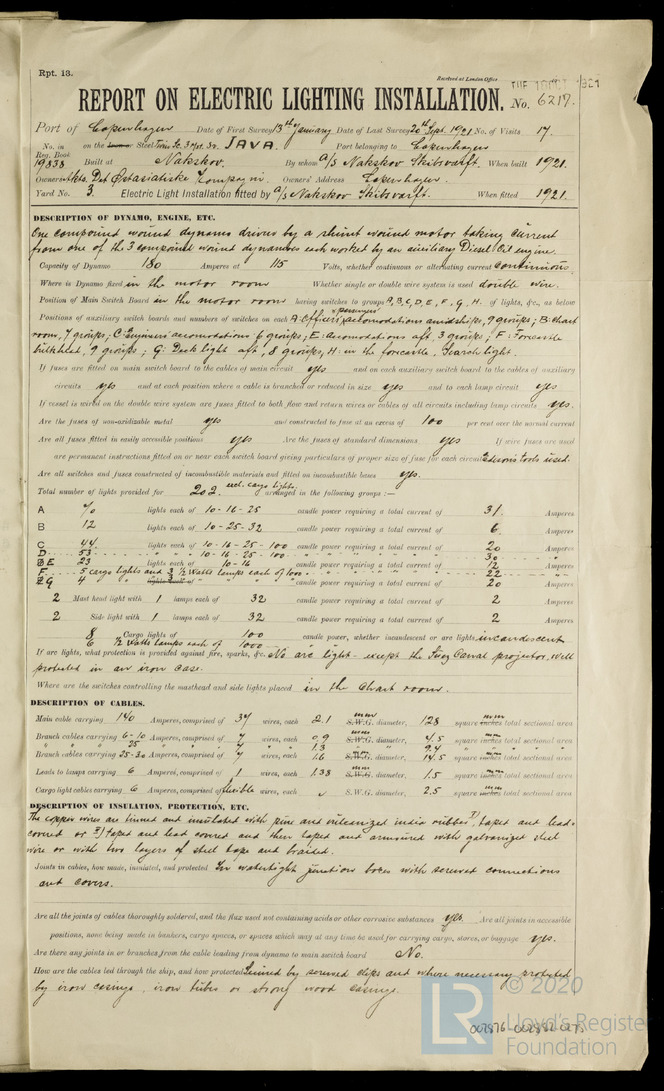 Rpt. 13.
Received at London Office
REPORT ON ELECTRIC LIGHTING INSTALLATION. No. 6217.
Port of Copenhagen Date of First Survey 13th January Date of Last Survey 20th Sept. 1921 No. of Visits 17.
No. in Reg. Book 19838 on the Steel JAVA. Port belonging to Copenhagen
Built at Nakskov. By whom A/S Nakskov Skibsværft. When built 1921.
Owners Akts. Det Østasiatiske Kompagni. Owners' Address Copenhagen.
Yard No. 3. Electric Light Installation fitted by A/S Nakskov Skibsværft. When fitted 1921.
DESCRIPTION OF DYNAMO, ENGINE, ETC.
One compound wound dynamo driven by a shunt wound motor taking current
from one of the 3 compound wound dynamoes each worked by an auxiliary Diesel Oil engine.
Capacity of Dynamo 180 Amperes at 115 Volts, whether continuous or alternating current continuous.
Where is Dynamo fixed in the motor room Whether single or double wire system is used double wire.
Position of Main Switch Board in the motor room having switches to groups A, B, C, D, E, F, G, H. of lights, &c., as below
Positions of auxiliary switch boards and numbers of switches on each A: Officers & passengers accomodations amidships, 9 groups; B: Chart
room, 7 groups; C: Engineers accomodations 6 groups; E: Accomodations aft, 3 groups; F: Forcastle
bulkhead, 9 groups; G: Deck light aft, 8 groups, H: in the forcastle, Search light.
If fuses are fitted on main switch board to the cables of main circuit yes and on each auxiliary switch board to the cables of auxiliary
circuits yes and at each position where a cable is branched or reduced in size yes and to each lamp circuit yes
If vessel is wired on the double wire system are fuses fitted to both flow and return wires or cables of all circuits including lamp circuits yes.
Are the fuses of non-oxidizable metal yes and constructed to fuse at an excess of 100 per cent over the normal current
Are all fuses fitted in easily accessible positions yes Are the fuses of standard dimensions yes If wire fuses are used
are permanent instructions fitted on or near each switch board giving particulars of proper size of fuse for each circuit Edisons tools used.
Are all switches and fuses constructed of incombustible materials and fitted on incombustible bases yes.
Total number of lights provided for 202. excl. cargo lights. arranged in the following groups :—
A 70 lights each of 10-16-25 candle power requiring a total current of 31. Amperes
B 12 lights each of 10-25-32 candle power requiring a total current of 6. Amperes
C 44 lights each of 10-16-25-100 candle power requiring a total current of 20 Amperes
D 53 10-16-25-100 30
E 23 lights each of 10-16 candle power requiring a total current of 12 Amperes
F 5 cargo lights and 3 ½ Watts lamps each of 1000 22
G 4 candle power requiring a total current of 20 Amperes
2 Mast head light with 1 lamps each of 32 candle power requiring a total current of 2 Amperes
2 Side light with 1 lamps each of 32 candle power requiring a total current of 2 Amperes
8 Cargo lights of 100 candle power, whether incandescent or arc lights incandescent
6 ½ Watts lamps each of 1000
If arc lights, what protection is provided against fire, sparks, &c. No arc light - except the Suez Canal projector, well
protected in an iron case.
Where are the switches controlling the masthead and side lights placed in the Chart room.
DESCRIPTION OF CABLES.
Main cable carrying 140 Amperes, comprised of 37 wires, each 2.1 mm S.W.G. diameter, 128 square mm inches total sectional area
Branch cables carrying 6-10 Amperes, comprised of 7 wires, each 0.9 mm S.W.G. diameter, 4.5 square mm inches total sectional area
25 7 1.3 9.4
Branch cables carrying 25-30 Amperes, comprised of 7 wires, each 1.6 mm S.W.G. diameter, 14.5 square mm inches total sectional area
Leads to lamps carrying 6 Amperes, comprised of 1 wires, each 1.38 mm S.W.G. diameter, 1.5 square mm inches total sectional area
Cargo light cables carrying 6 Amperes, comprised of flexible wires, each S.W.G. diameter, 2.5 square mm inches total sectional area
DESCRIPTION OF INSULATION, PROTECTION, ETC.
The copper wires are tinned and insulated with pure and vulcanized india rubber, taped and lead-
covered or taped and lead covered and then taped and armoured with galvanized steel
wire or with two layers of steel tape and braided.
Joints in cables, how made, insulated, and protected In watertight junction boxes with screwed connections
and covers.
Are all the joints of cables thoroughly soldered, and the flux used not containing acids or other corrosive substances yes. Are all joints in accessible
positions, none being made in bunkers, cargo spaces, or spaces which may at any time be used for carrying cargo, stores, or baggage yes.
Are there any joints in or branches from the cable leading from dynamo to main switch board No.
How are the cables led through the ship, and how protected by screwed clips and where necessary protected
by iron casings, iron tubes or strong wood casings.
© 2020
Lloyd's Register
Foundation